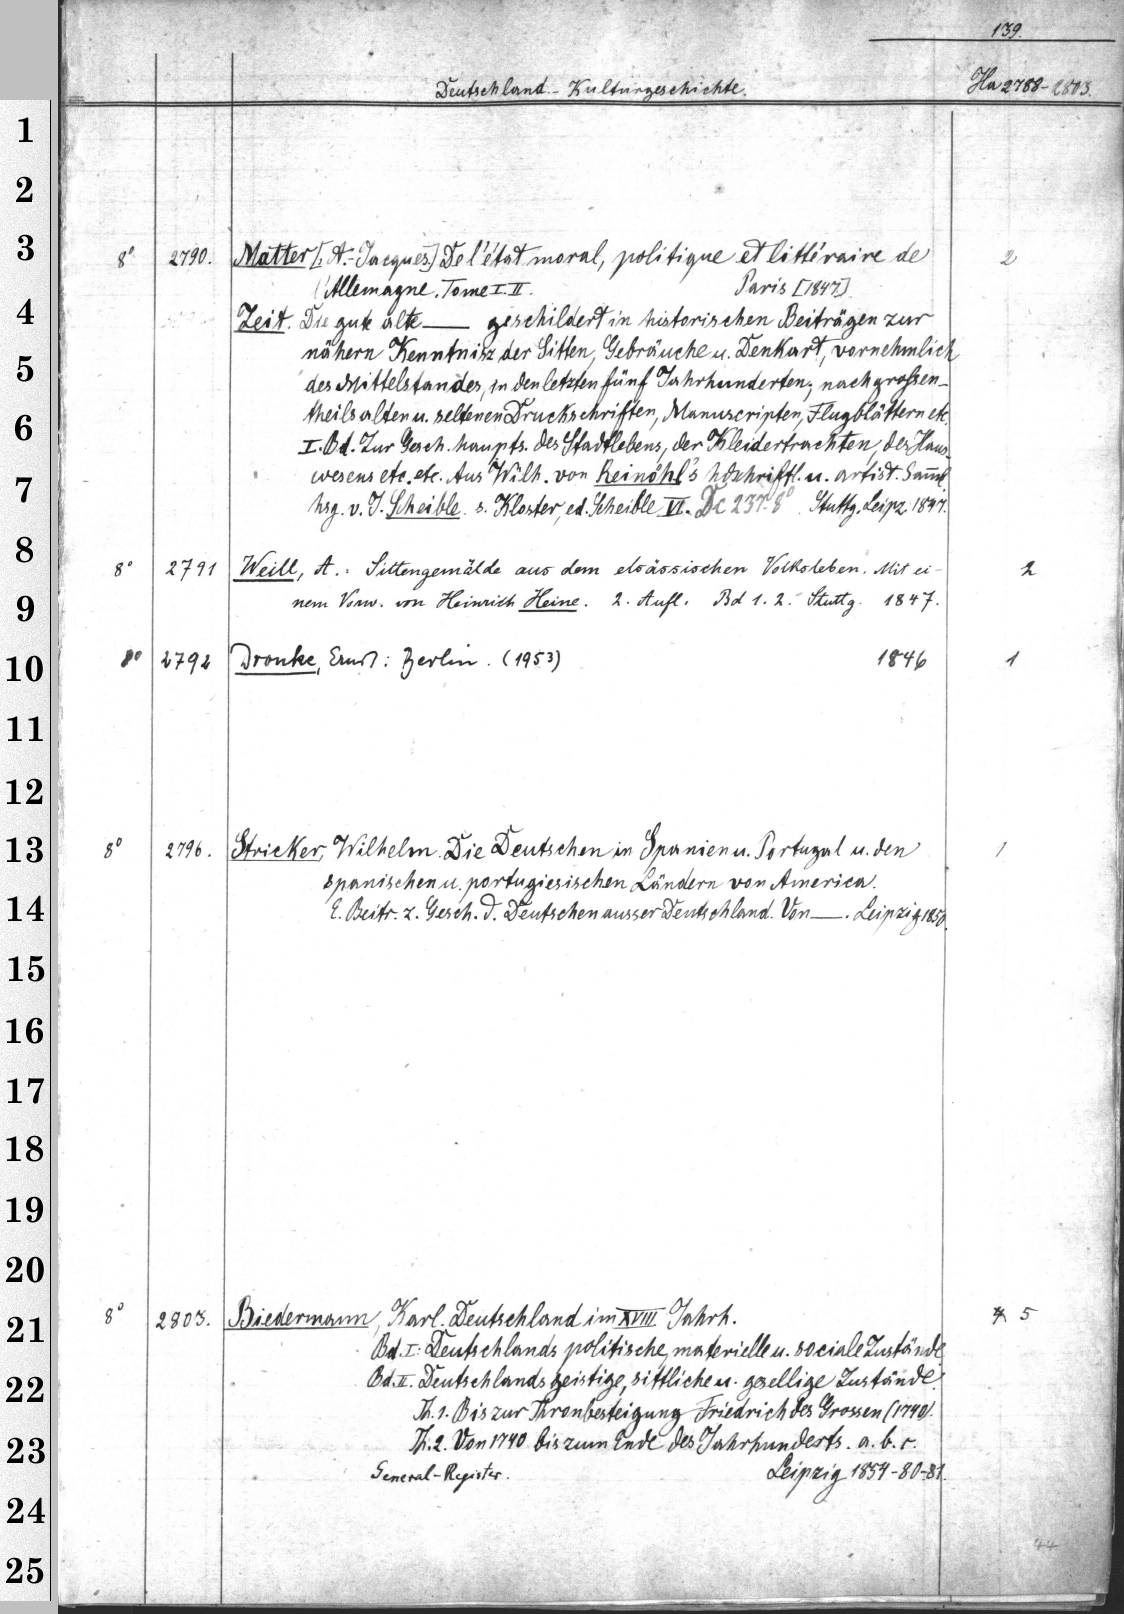 139.
Deutschland.- Kulturgeschichte. Ha 2788-2803.
1
2
3
4
5
6
7
8
9
10
11
12
13
14
15
16
17
18
19
20
21
22
23
24
25
8° 2790. Matter [, A.-Jacques] De l'état moral, politique et littéraire de 2
l'Allemagne. Tome I. II. Paris [1847]
Zeit. Die gute alte — geschildert in historischen Beiträgen zur
nähern Kenntnisz der Sitten, Gebräuche u. Denkart, vornehmlich
des Mittelstandes, in den letzten fünf Jahrhunderten; nach grossen-
theils alten u. seltenen Druckschriften, Manuscripten, Flugblättern etc.
I. Bd. Zur Gesch. haupts. des Stadtlebens, der Kleidertrachten, des Haus-
wesens etc. etc. Aus Wilh. von Reinöhl's hdschriftl. u. artist. Samml.
hsg. v. J. Scheible. s. Kloster, ed. Scheible VI. Dc 237. 8° Stuttg. Leipz. 1847.
8° 2791 Weill, A.: Sittengemälde aus dem elsässischen Volksleben. Mit ei- 2
nem Vorw. von Heinrich Heine. 2. Aufl. Bd 1. 2. Stuttg. 1847.
8° 2792 Dronke, Ernst: Berlin. (1953) 1846 1
8° 2796. Stricker, Wilhelm. Die Deutschen in Spanien u. Portugal u. den 1
spanischen u. portugiesischen Ländern von America.
E. Beitr. z. Gesch. d. Deutschen ausser Deutschland. Von —. Leipzig 1850.
8° 2803. Biedermann, Karl. Deutschland im XVIII Jahrh. 5
Bd. I: Deutschlands politische, materielle u. sociale Zustände.
Bd. II. Deutschlands geistige, sittliche u. gesellige Zustände.
Th. 1. Bis zur Thronbesteigung Friedrich des Grossen (1740).
Th. 2. Von 1740 bis zum Ende des Jahrhunderts. a. b. c.
General-Register. Leipzig 1854-80-81.
44